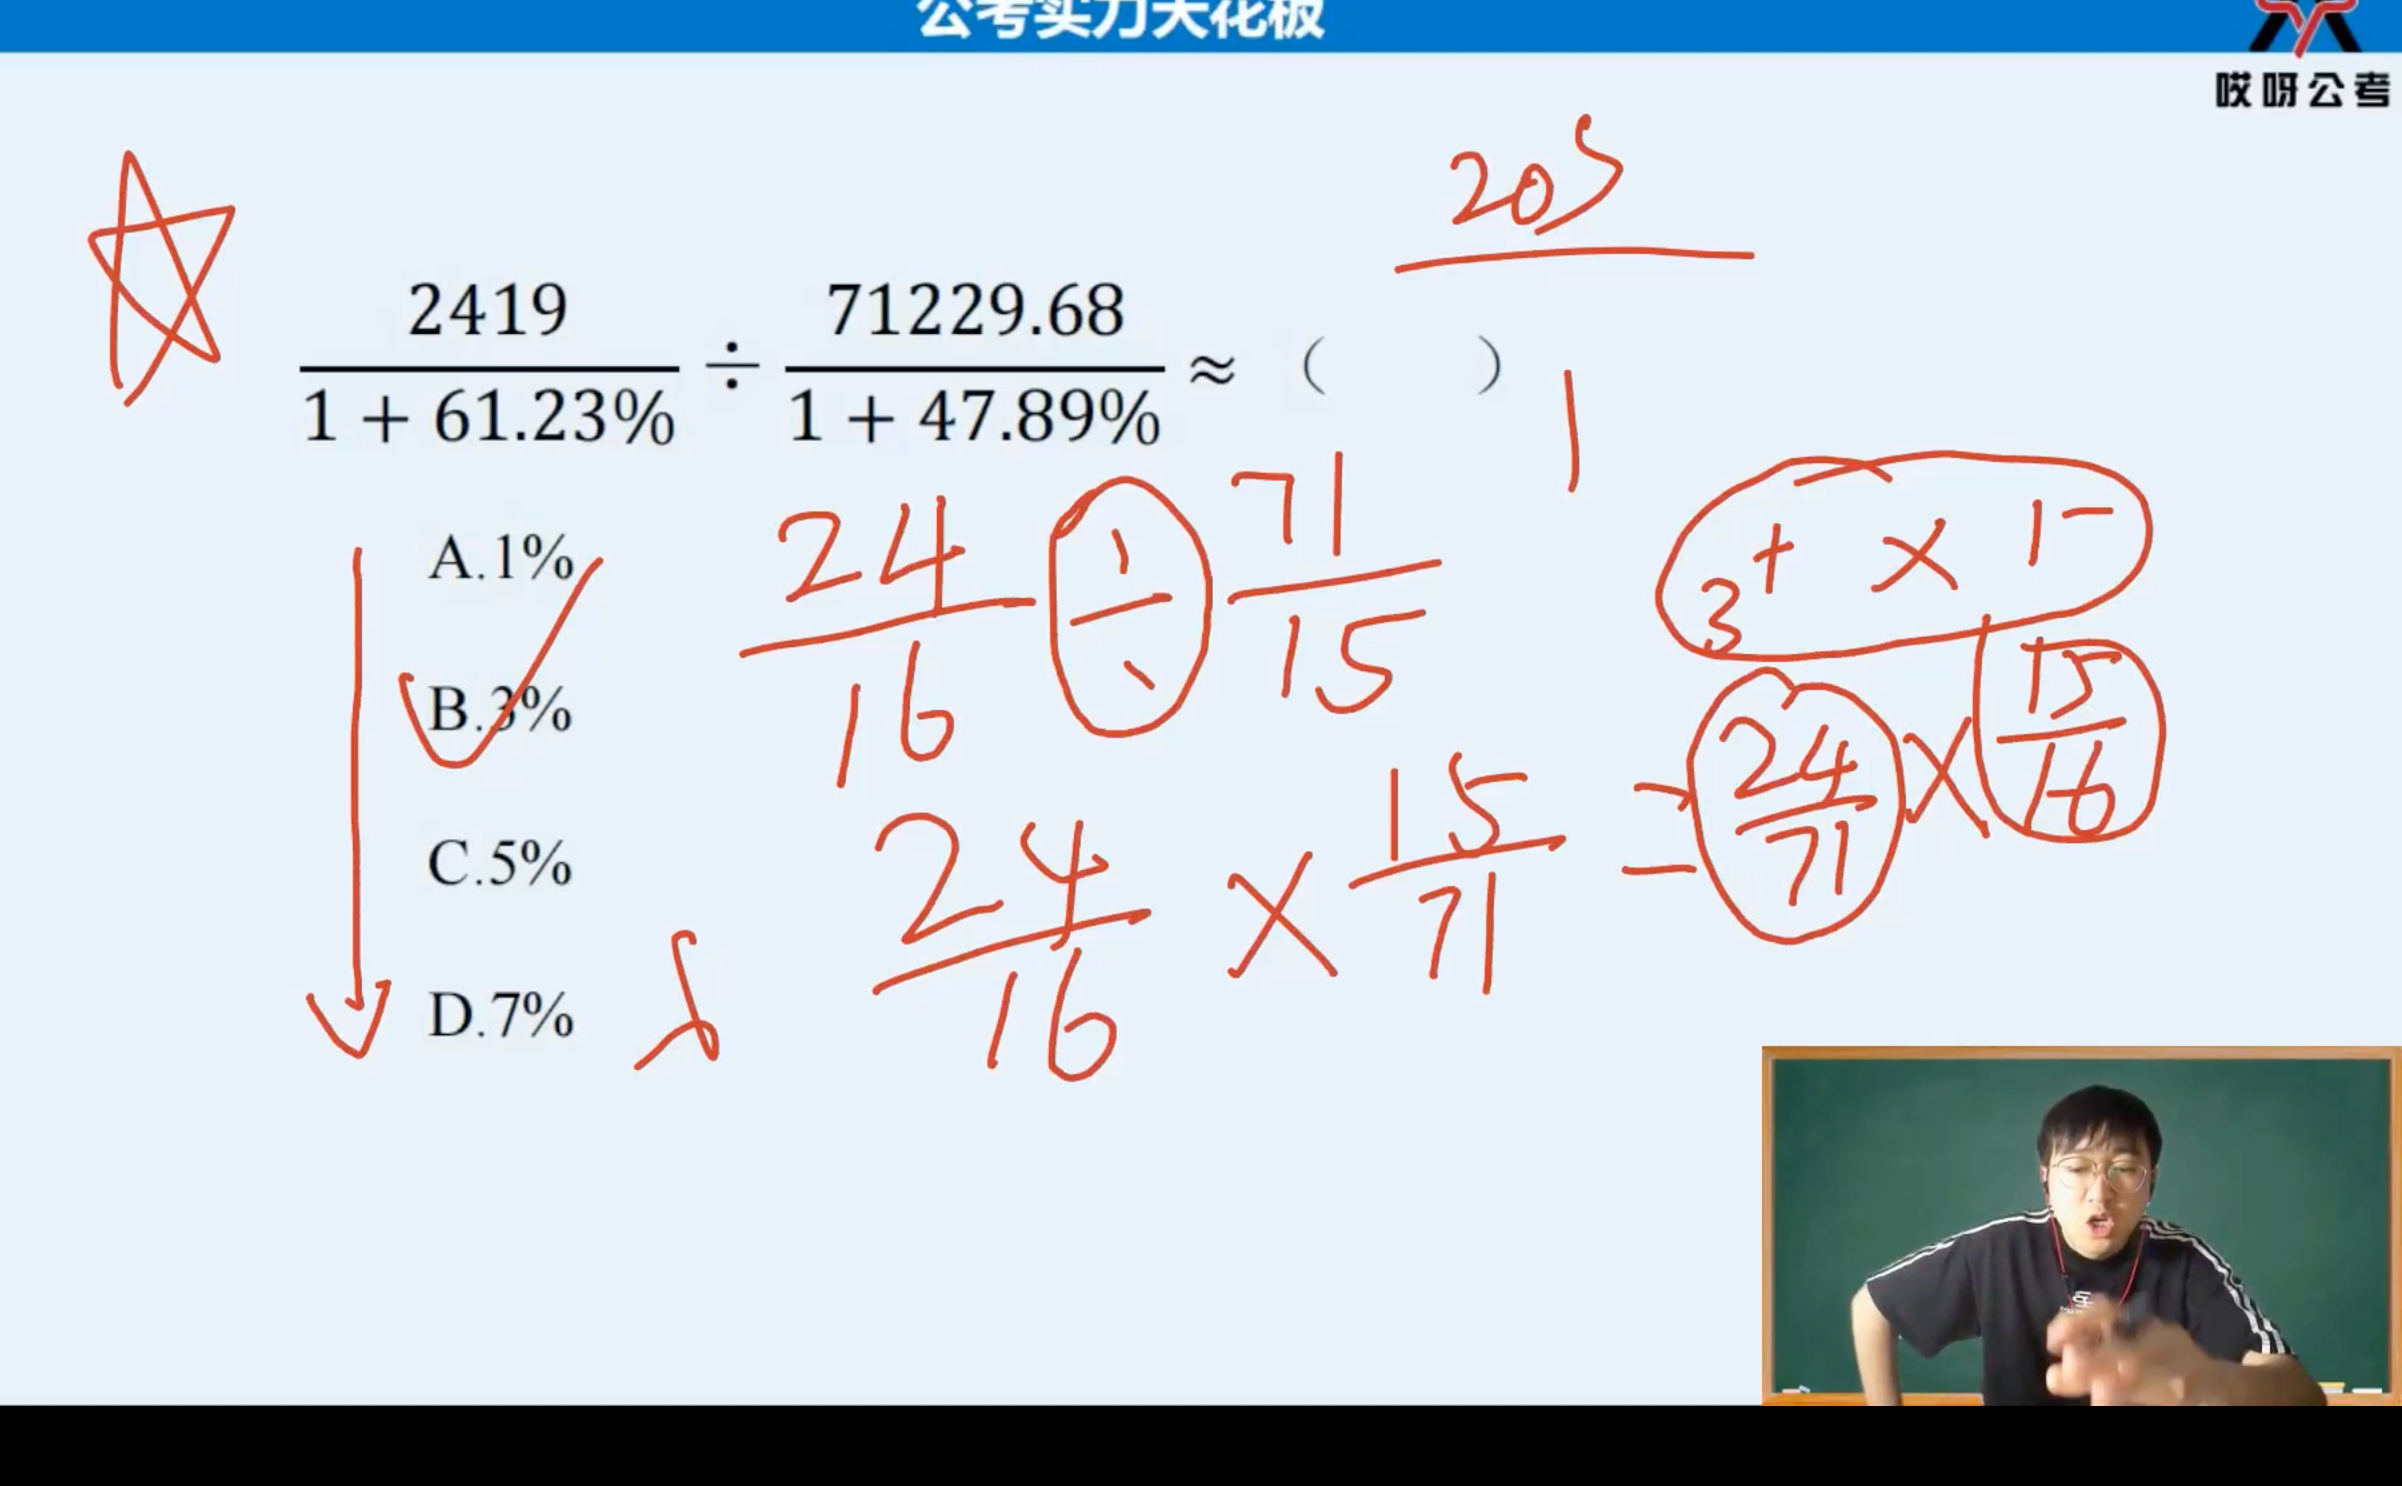 公考实力天花板
哎呀公考
20S
2419/(1 + 61.23%) ÷ 71229.68/(1 + 47.89%) ≈ （ ）
A.1%
B.3%
C.5%
D.7%
24/16 ÷ 71/15
24/16 × 15/71
3⁺ × 1⁻
= 24/71 × 15/16